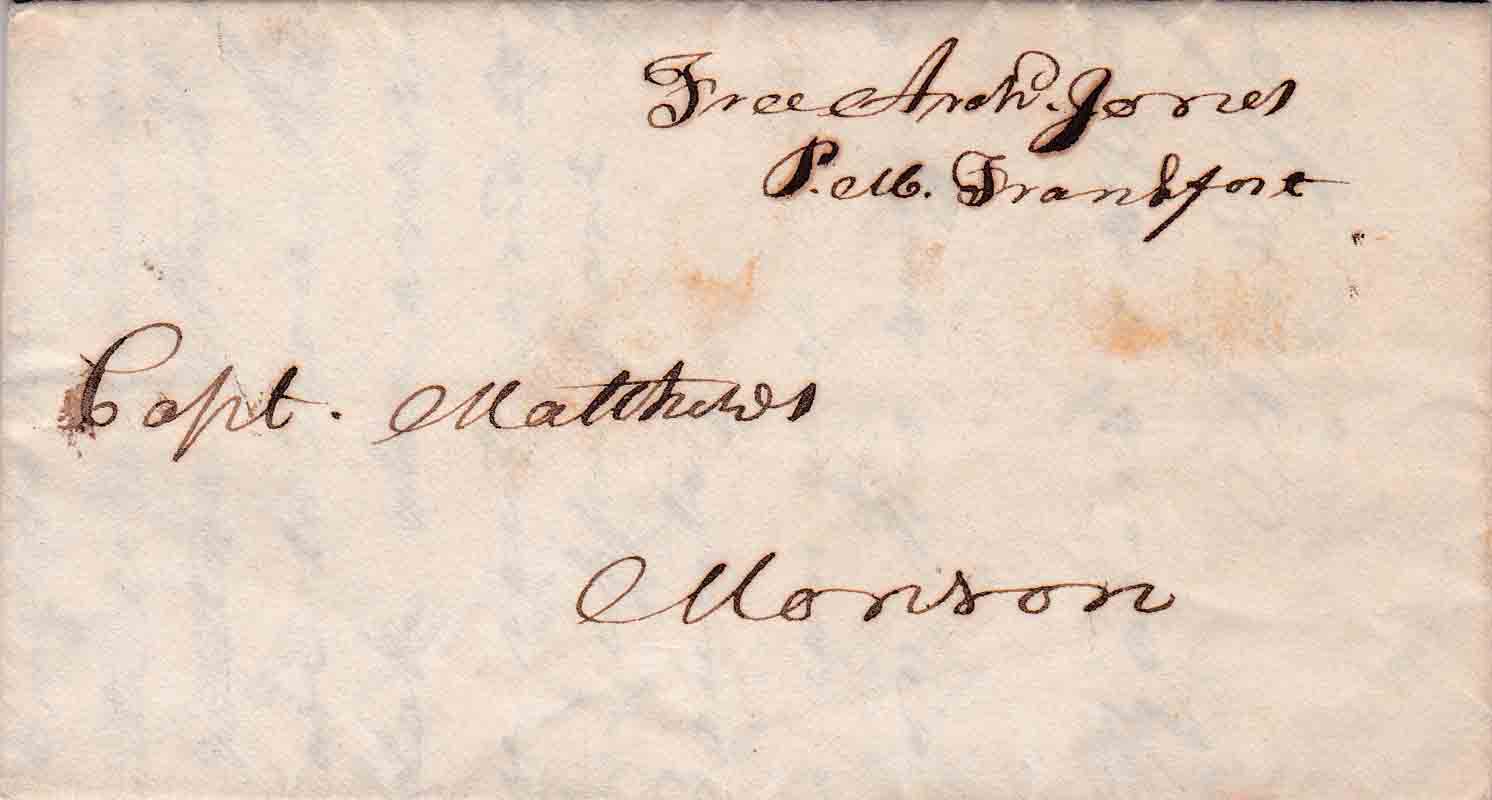 Free Archd. Jones
P.M. Frankfort
Capt. Matthews
Monson